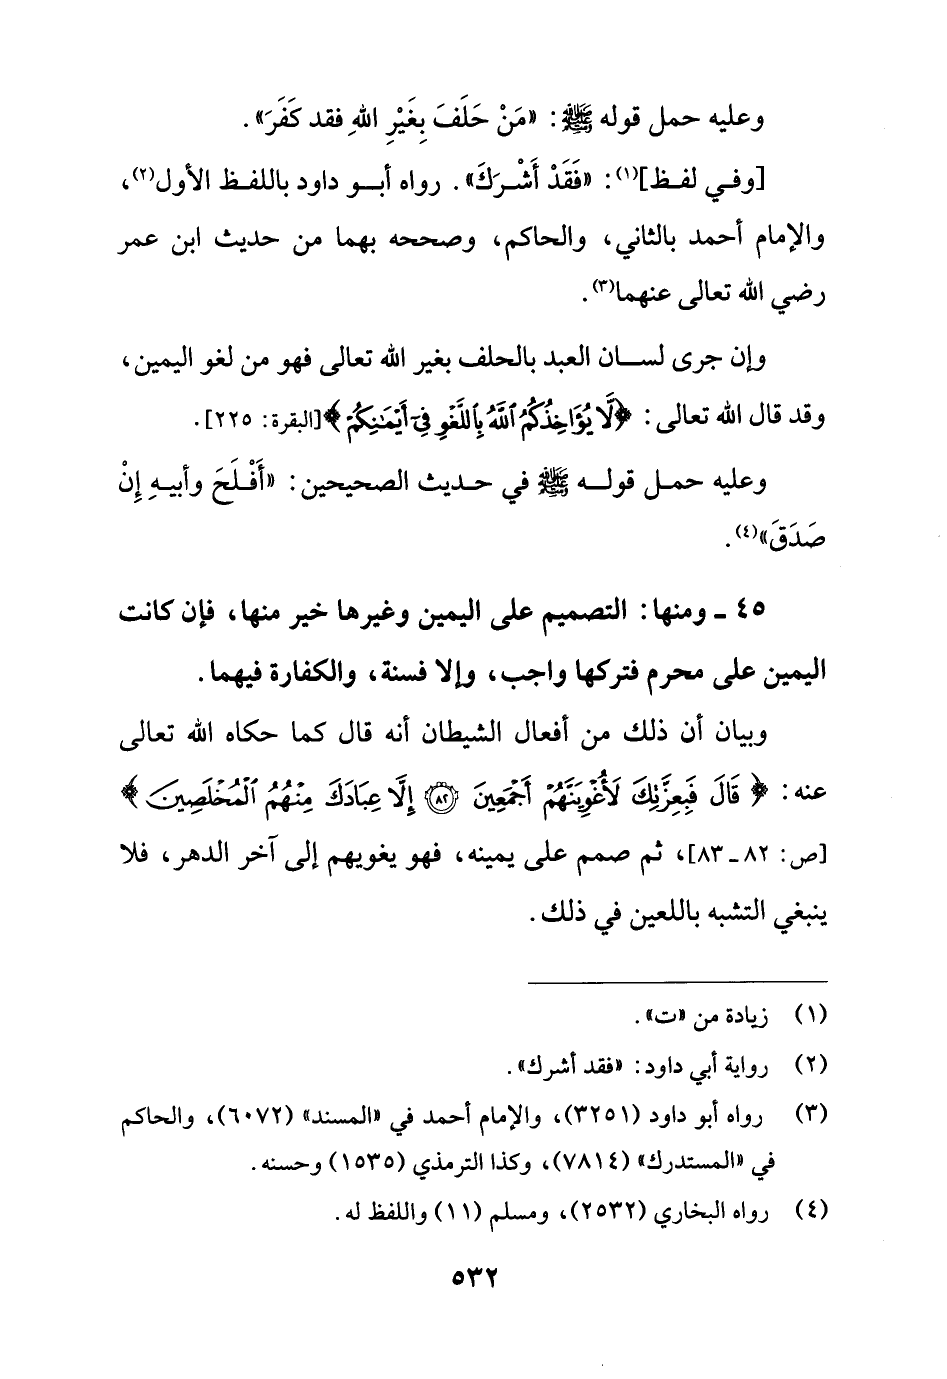 وعليه حمل قوله ﷺ: «مَنْ حَلَفَ بِغَيْرِ اللهِ فقد كَفَرَ».
[وفي لفظ](١): «فَقَدْ أَشْرَكَ». رواه أبو داود باللفظ الأول(٢)،
والإمام أحمد بالثاني، والحاكم، وصححه بهما من حديث ابن عمر
رضي الله تعالى عنهما(٣).
وإن جرى لسان العبد بالحلف بغير الله تعالى فهو من لغو اليمين،
وقد قال الله تعالى: ﴿لَّا يُؤَاخِذُكُمُ ٱللَّهُ بِٱللَّغْوِ فِىٓ أَيْمَـٰنِكُمْ﴾[البقرة: ٢٢٥].
وعليه حمل قوله ﷺ في حديث الصحيحين: «أَفْلَحَ وأبيهِ إنْ
صَدَقَ»(٤).
٤٥ ـ ومنها: التصميم على اليمين وغيرها خير منها، فإن كانت
اليمين على محرم فتركها واجب، وإلا فسنة، والكفارة فيهما.
وبيان أن ذلك من أفعال الشيطان أنه قال كما حكاه الله تعالى
عنه: ﴿قَالَ فَبِعِزَّتِكَ لَأُغْوِيَنَّهُمْ أَجْمَعِينَ ۝٨٢ إِلَّا عِبَادَكَ مِنْهُمُ ٱلْمُخْلَصِينَ﴾
[ص: ٨٢ ـ ٨٣]، ثم صمم على يمينه، فهو يغويهم إلى آخر الدهر، فلا
ينبغي التشبه باللعين في ذلك.
(١) زيادة من «ت».
(٢) رواية أبي داود: «فقد أشرك».
(٣) رواه أبو داود (٣٢٥١)، والإمام أحمد في «المسند» (٦٠٧٢)، والحاكم
في «المستدرك» (٧٨١٤)، وكذا الترمذي (١٥٣٥) وحسنه.
(٤) رواه البخاري (٢٥٣٢)، ومسلم (١١) واللفظ له.
٥٣٢